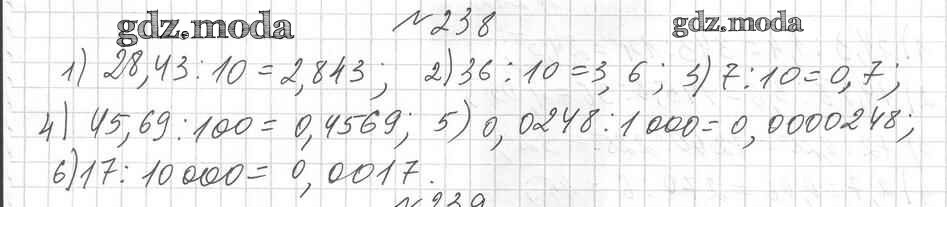 gdz.moda №238 gdz.moda
1) 28,43 : 10 = 2,843; 2) 36 : 10 = 3,6; 3) 7 : 10 = 0,7;
4) 45,69 : 100 = 0,4569; 5) 0,0248 : 1000 = 0,0000248;
6) 17 : 10000 = 0,0017.
№239